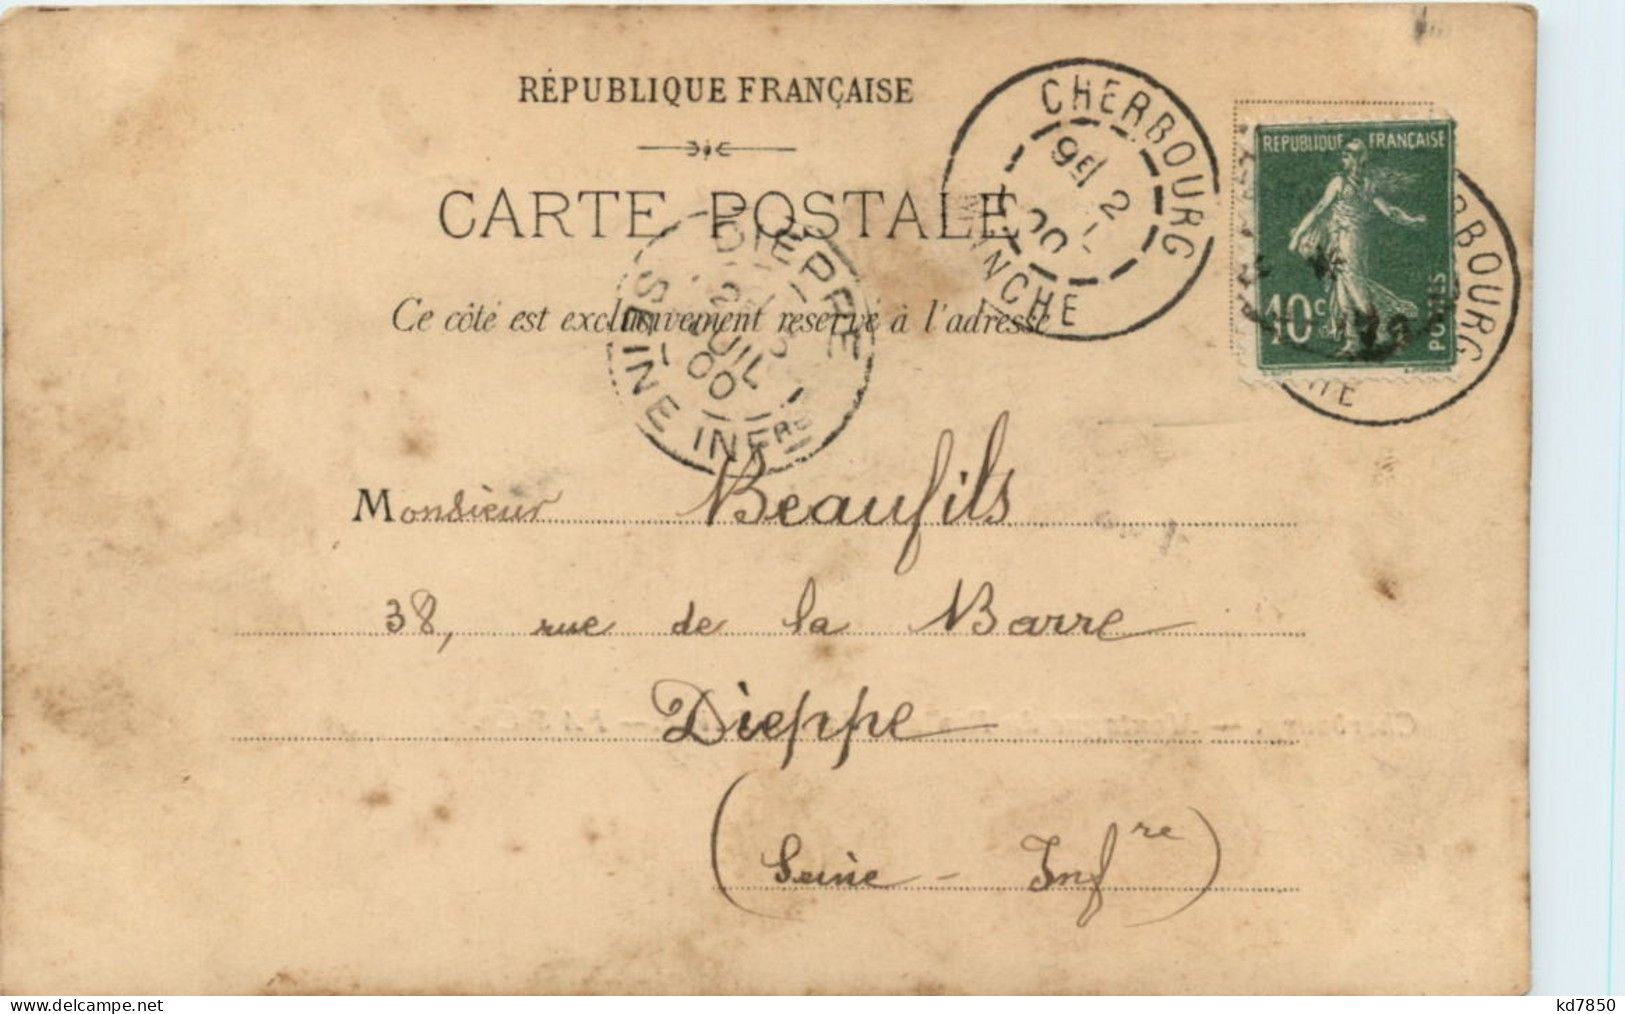 RÉPUBLIQUE FRANÇAISE
CARTE POSTALE
Ce côté est exclusivement réservé à l'adresse
CHERBOURG
MANCHE
DIEPPE
SEINE INFRE
2 JUIL 00
RÉPUBLIQUE FRANÇAISE
10c
POSTES
Monsieur Beaufils
38, rue de la Barre
Dieppe
(Seine - Infre)
kd7850